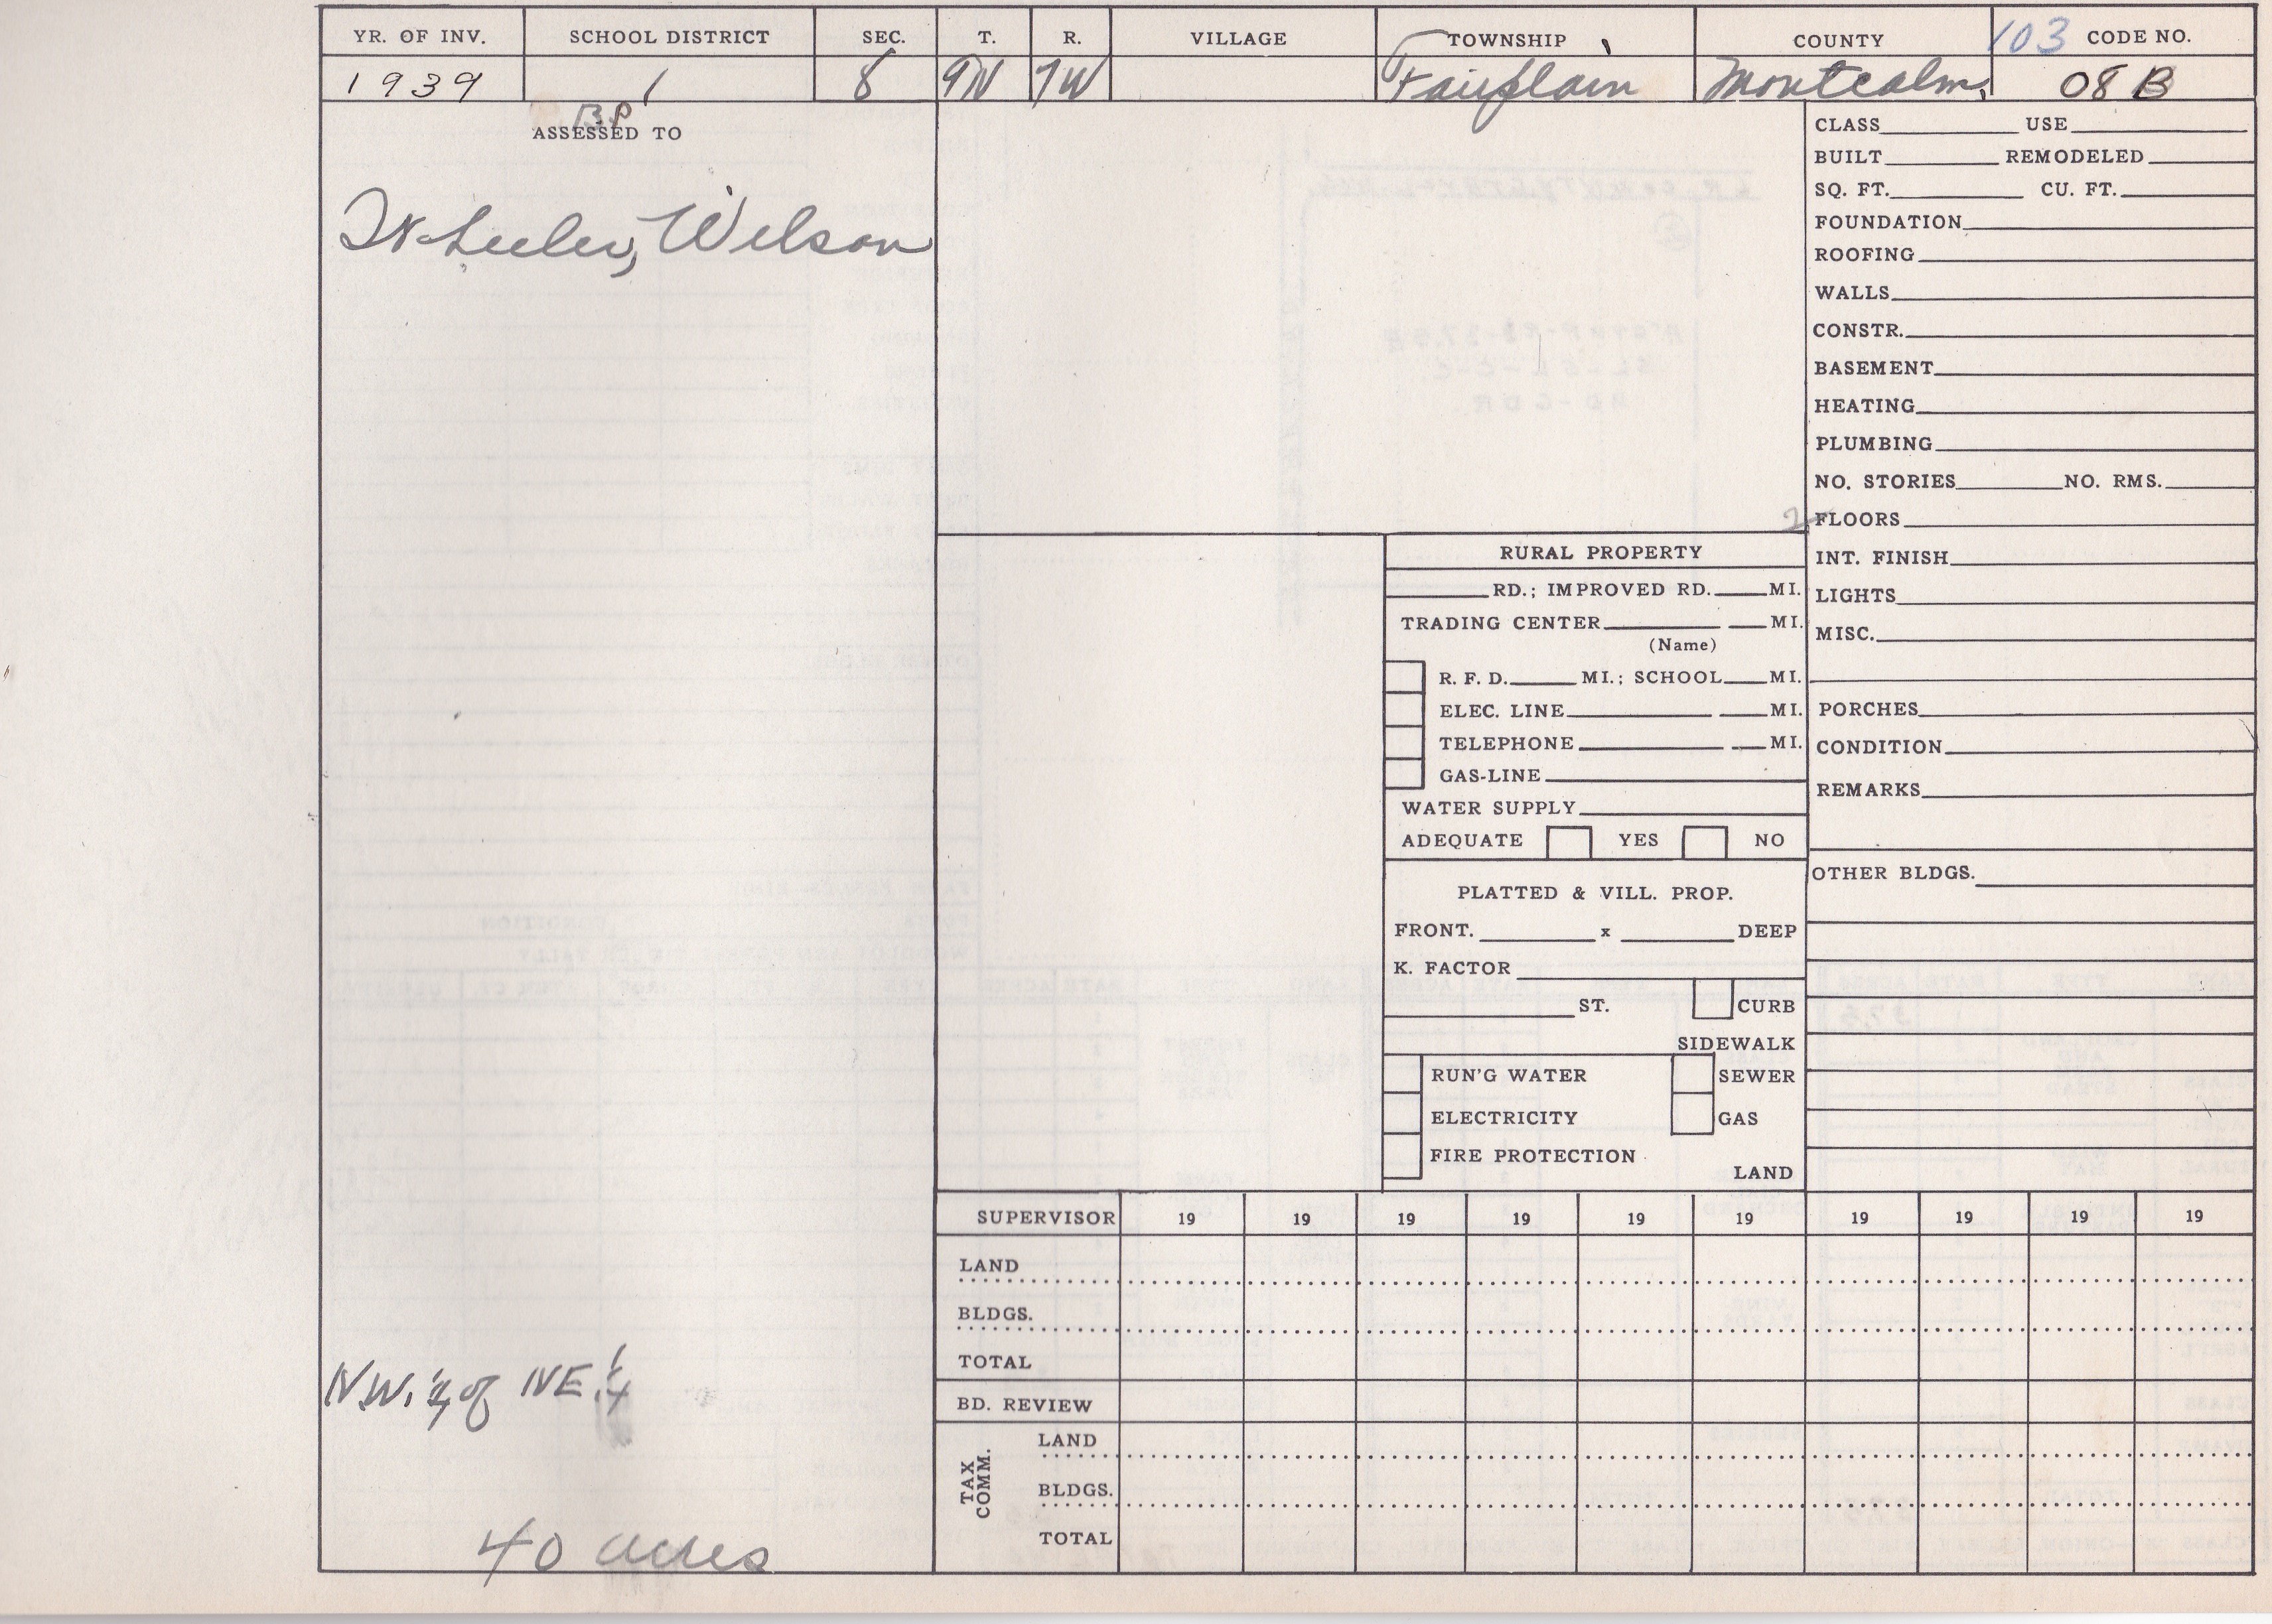 YR. OF INV. SCHOOL DISTRICT SEC. T. R. VILLAGE TOWNSHIP COUNTY 103 CODE NO.
1939 1 8 9N 7W Fairplain Montcalm 08 B
B.P
ASSESSED TO
Wheeler, Wilson
NW. 1/4 of NE. 1/4
40 acres
CLASS USE
BUILT REMODELED
SQ. FT. CU. FT.
FOUNDATION
ROOFING
WALLS
CONSTR.
BASEMENT
HEATING
PLUMBING
NO. STORIES NO. RMS.
2 FLOORS
INT. FINISH
LIGHTS
MISC.
PORCHES
CONDITION
REMARKS
OTHER BLDGS.
RURAL PROPERTY
RD.; IMPROVED RD. MI.
TRADING CENTER MI.
(Name)
R. F. D. MI.; SCHOOL MI.
ELEC. LINE MI.
TELEPHONE MI.
GAS-LINE
WATER SUPPLY
ADEQUATE YES NO
PLATTED & VILL. PROP.
FRONT. x DEEP
K. FACTOR
ST. CURB
SIDEWALK
RUN'G WATER SEWER
ELECTRICITY GAS
FIRE PROTECTION
LAND
SUPERVISOR 19 19 19 19 19 19 19 19 19 19
LAND
BLDGS.
TOTAL
BD. REVIEW
TAX COMM.
LAND
BLDGS.
TOTAL